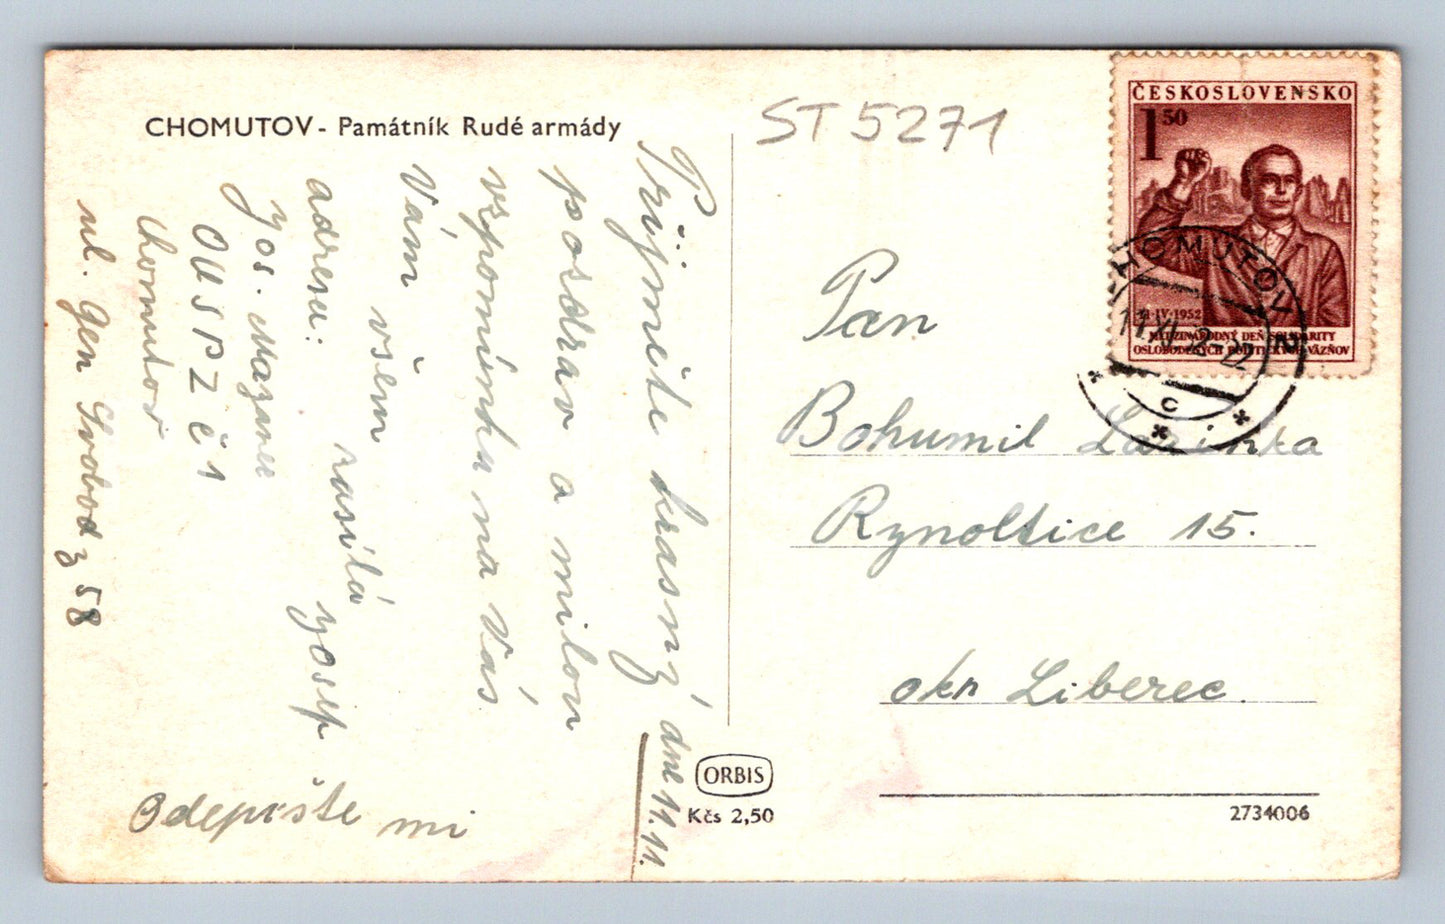 CHOMUTOV - Památník Rudé armády
ST 5271
ČESKOSLOVENSKO
1 50
11·IV·1952
MEZINÁRODNÝ DEŇ SOLIDARITY
OSLOBODENÝCH POLITICKÝCH VÄZŇOV
CHOMUTOV 2
11.XI.52-22
c
Přijměte krasný
posdrav a milou
vspomínku na Vás
Vám všem
rasílá yosef
adresa:
yos. Mazura
OUSPZ č 1
Chomutov
ul. Gen Svobod 3 58
Odepište mi
dne 11.11.
Pan
Bohumil
Rynoltice 15.
okr Liberec.
ORBIS
Kčs 2,50
2734006